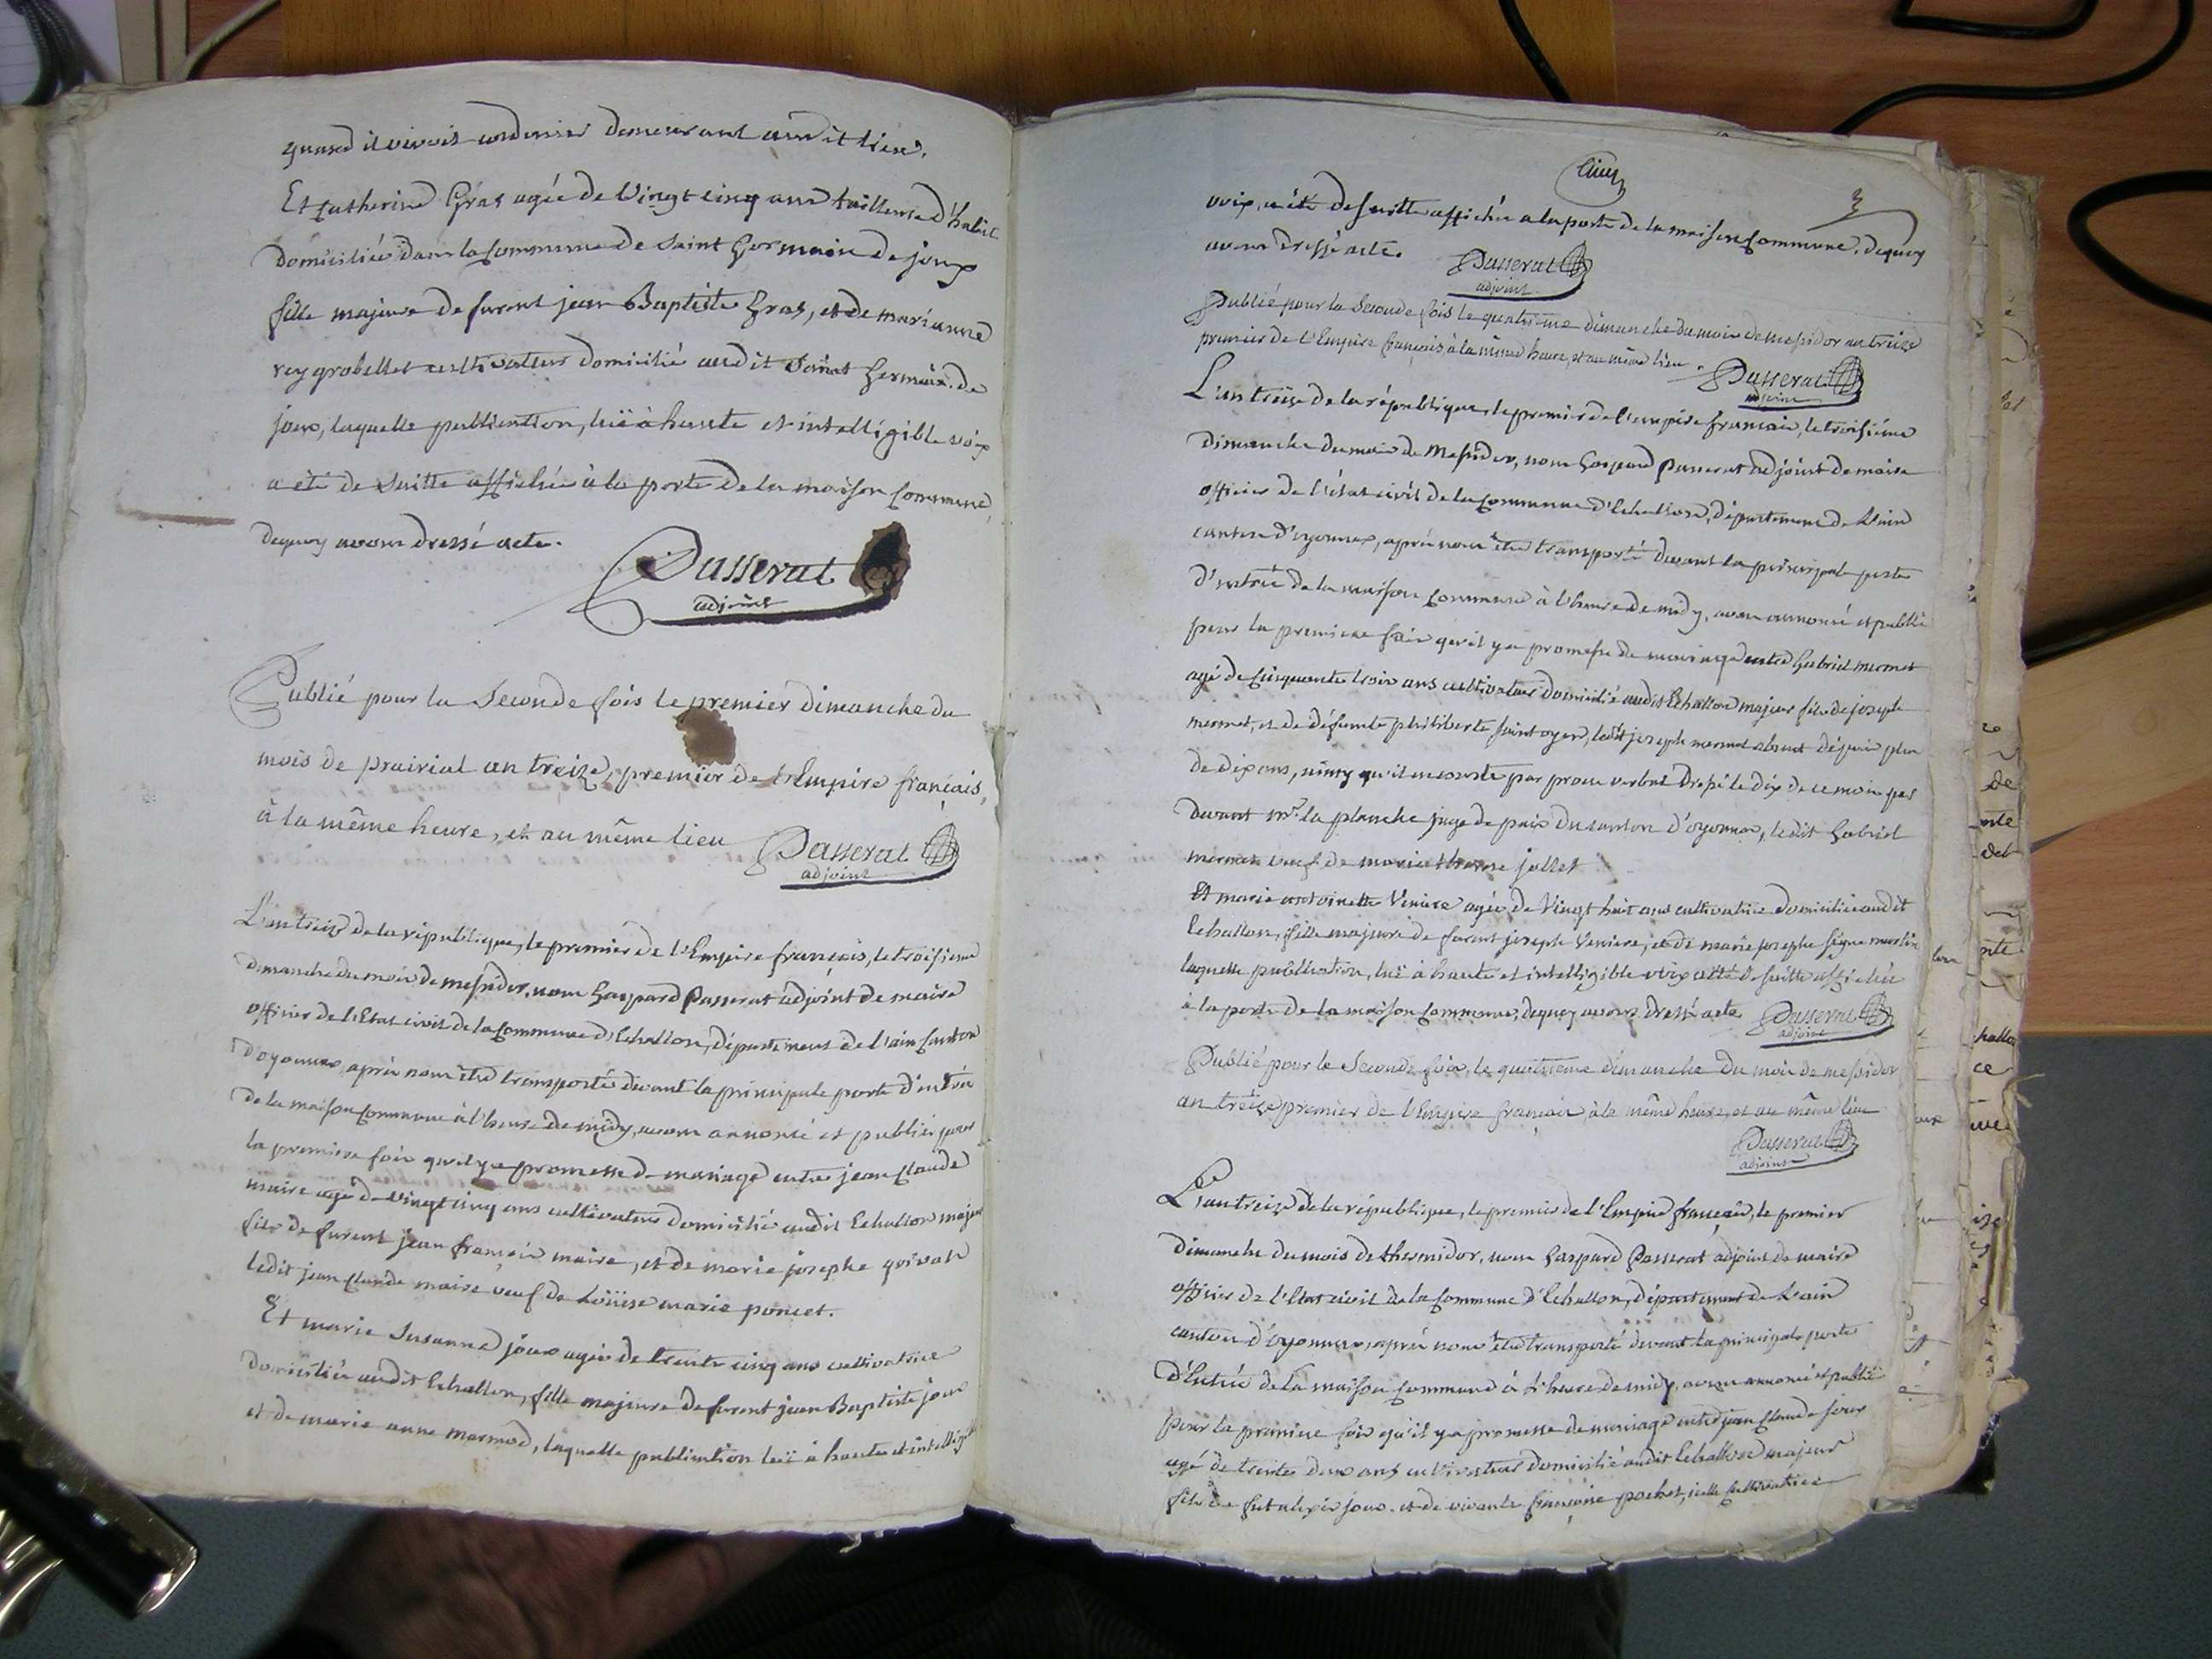 quand il vivoit cordonier demeurant audit lieu.
Et Catherine Gras agée de Vingt cinq ans tailleuse d'habit
domiciliée dans la Commune de Saint Germain de joux
fille majeure de furent jean Baptiste Gras, et de marianne
rey grobellet cultivateur domicilié audit Saint Germain de
joux, laquelle publication, luë à haute et intelligible voix
a été de suitte affichée à la porte de la maison Commune,
dequoy avons dressé acte.
Passerat
adjoint
Publié pour la Seconde fois le premier dimanche du
mois de prairial an treize, premier de l'Empire français,
à la même heure, et au même lieu
Passerat
adjoint
L'an treize de la république, le premier de l'Empire français, le troisième
dimanche du mois de messidor, nous Gaspard Passerat adjoint de maire
officier de l'Etat civil de la Commune d'Echallon, département de l'ain Canton
d'oyonnax, après nous être transporté devant la principale porte d'entrée
de la maison Commune à l'heure de midy, avons annoncé et publié pour
la première fois qu'il y a promesse de mariage entre jean Claude
maire agé de vingt cinq ans cultivateur domicilié audit Echallon majeur
fils de furent jean françois maire, et de marie josephe
ledit jean Claude maire veuf de Loüise marie poncet.
Et marie Susanne joux agée de trente cinq ans cultivatrice
domiciliée audit Echallon, fille majeure de furent jean Baptiste joux
et de marie anne mermod, laquelle publication luë à haute et intelligible
voix, a été de suitte affichée a la porte de la maison Commune, dequoy
avons dressé acte.
Passerat
adjoint
Publié pour la Seconde fois le quatrième dimanche du mois de messidor an treize
premier de l'Empire français à la même heure, et au même lieu
Passerat
adjoint
L'an treize de la république, le premier de l'empire français, le troisième
dimanche du mois de Messidor, nous Gaspard Passerat adjoint de maire
officier de l'état civil de la Commune d'Echallon, département de l'ain
canton d'oyonnax, après nous être transporté devant la principale porte
d'entrée de la maison Commune à l'heure de midy, avons annoncé et publié
pour la premiere fois qu'il y a promesse de mariage entre Gabriel mermet
agé de Cinquante trois ans cultivateur domicilié audit Echallon majeur fils de joseph
mermet, et de défunte philiberte Saint oyen, ledit joseph mermet absent dépuis plus
de dix ans, ainsy qu'il en conste par procès verbal dressé le dix de ce mois par
devant mr. la planche juge de paix du canton d'oyonnax, ledit Gabriel
mermet veuf de marie therese jollet
Et marie antoinette Veniere agée de Vingt huit ans cultivatrice domiciliée audit
Echallon, fille majeure de furent joseph Veniere, et de marie josephe
laquelle publication, luë à haute et intelligible voix a été de suitte affichée
à la porte de la maison Commune, dequoy avons dressé acte
Passerat
adjoint
Publié pour la Seconde fois, le quatrième dimanche du mois de messidor
an treize premier de l'Empire français, à la même heure, et au même lieu
Passerat
adjoint
L'an treize de la république, le premier de l'Empire français, le premier
dimanche du mois de thermidor, nous Gaspard Passerat adjoint de maire
officier de l'Etat civil de la Commune d'Echallon, département de l'ain
canton d'oyonnax, après nous être transporté devant la principale porte
d'Entrée de la maison Commune à l'heure de midy, avons annoncé et publié
pour la premiere fois qu'il y a promesse de mariage entre jean Claude joux
agé de trente deux ans cultivateur domicilié audit Echallon majeur
fils de fut alexis joux, et de vivante françoise pochet, icelle cultivatrice